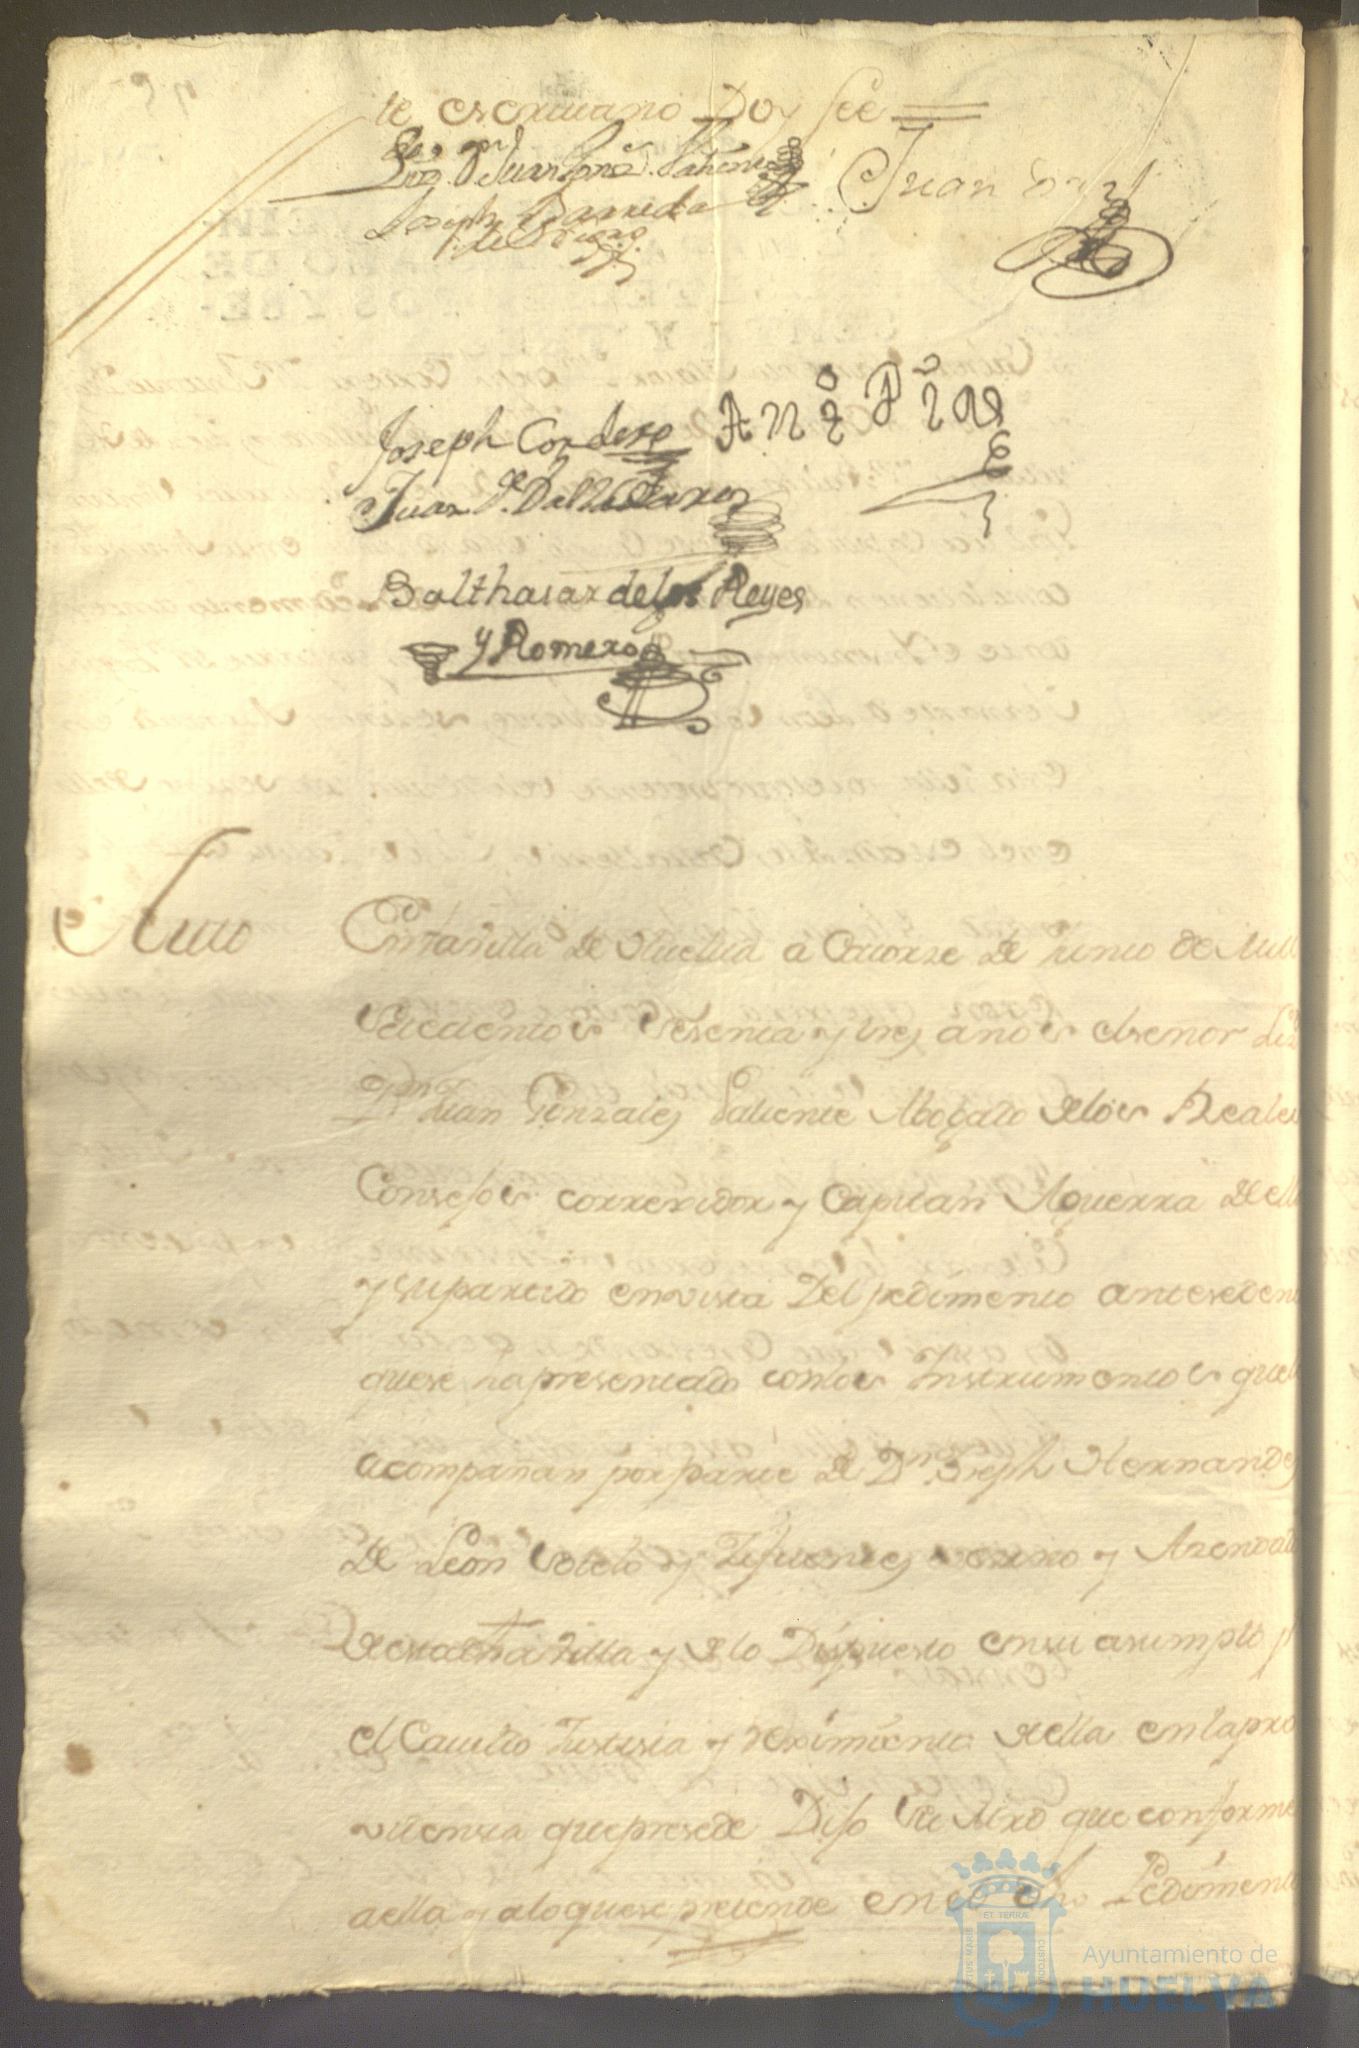 te escriuano Doy fee
Lizdo. Dn Juan Gonz. Valiente
Joseph Barreda
Juan
Joseph Cordero
Juan de
Balthasar de los Reyes
y Romero
Auto
En la Villa de Huelua a Catorze de Junio de Mill
Setecientos sesenta y tres años el señor Liz
Dn Juan Gonzales Valiente Abogado de los Reales
Consejos correxidor y Capitan Aguerra de ella
y su partido en vista Del pedimento anteseden
que se ha presentado con los Instrumentos que le
acompañan por parte de Dn Joseph Hernandez
De Leon Sotelo y Zifuentes vezino y Azendad
De esta dha Villa y de lo Dispuesto en su asumpto p
el Cauildo Justisia y reximiento de ella en la pro
videnzia que presede Dijo Su Mrd que conforme
a ella y a lo que se pretende en el dho Pedimento
Ayuntamiento de
HUELVA